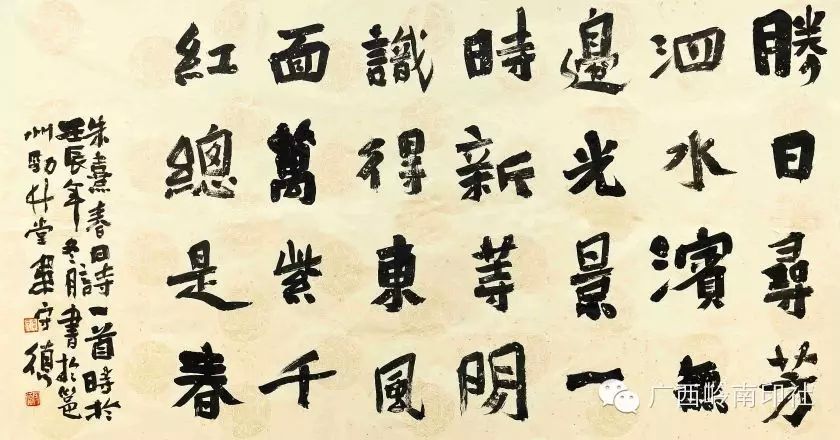 勝日尋芳
泗水濱無
邊光景一
時新等閒
識得東風
面萬紫千
紅總是春
朱熹春日詩一首時於
壬辰年冬月書於邕
州勁堂守
广西岭南印社